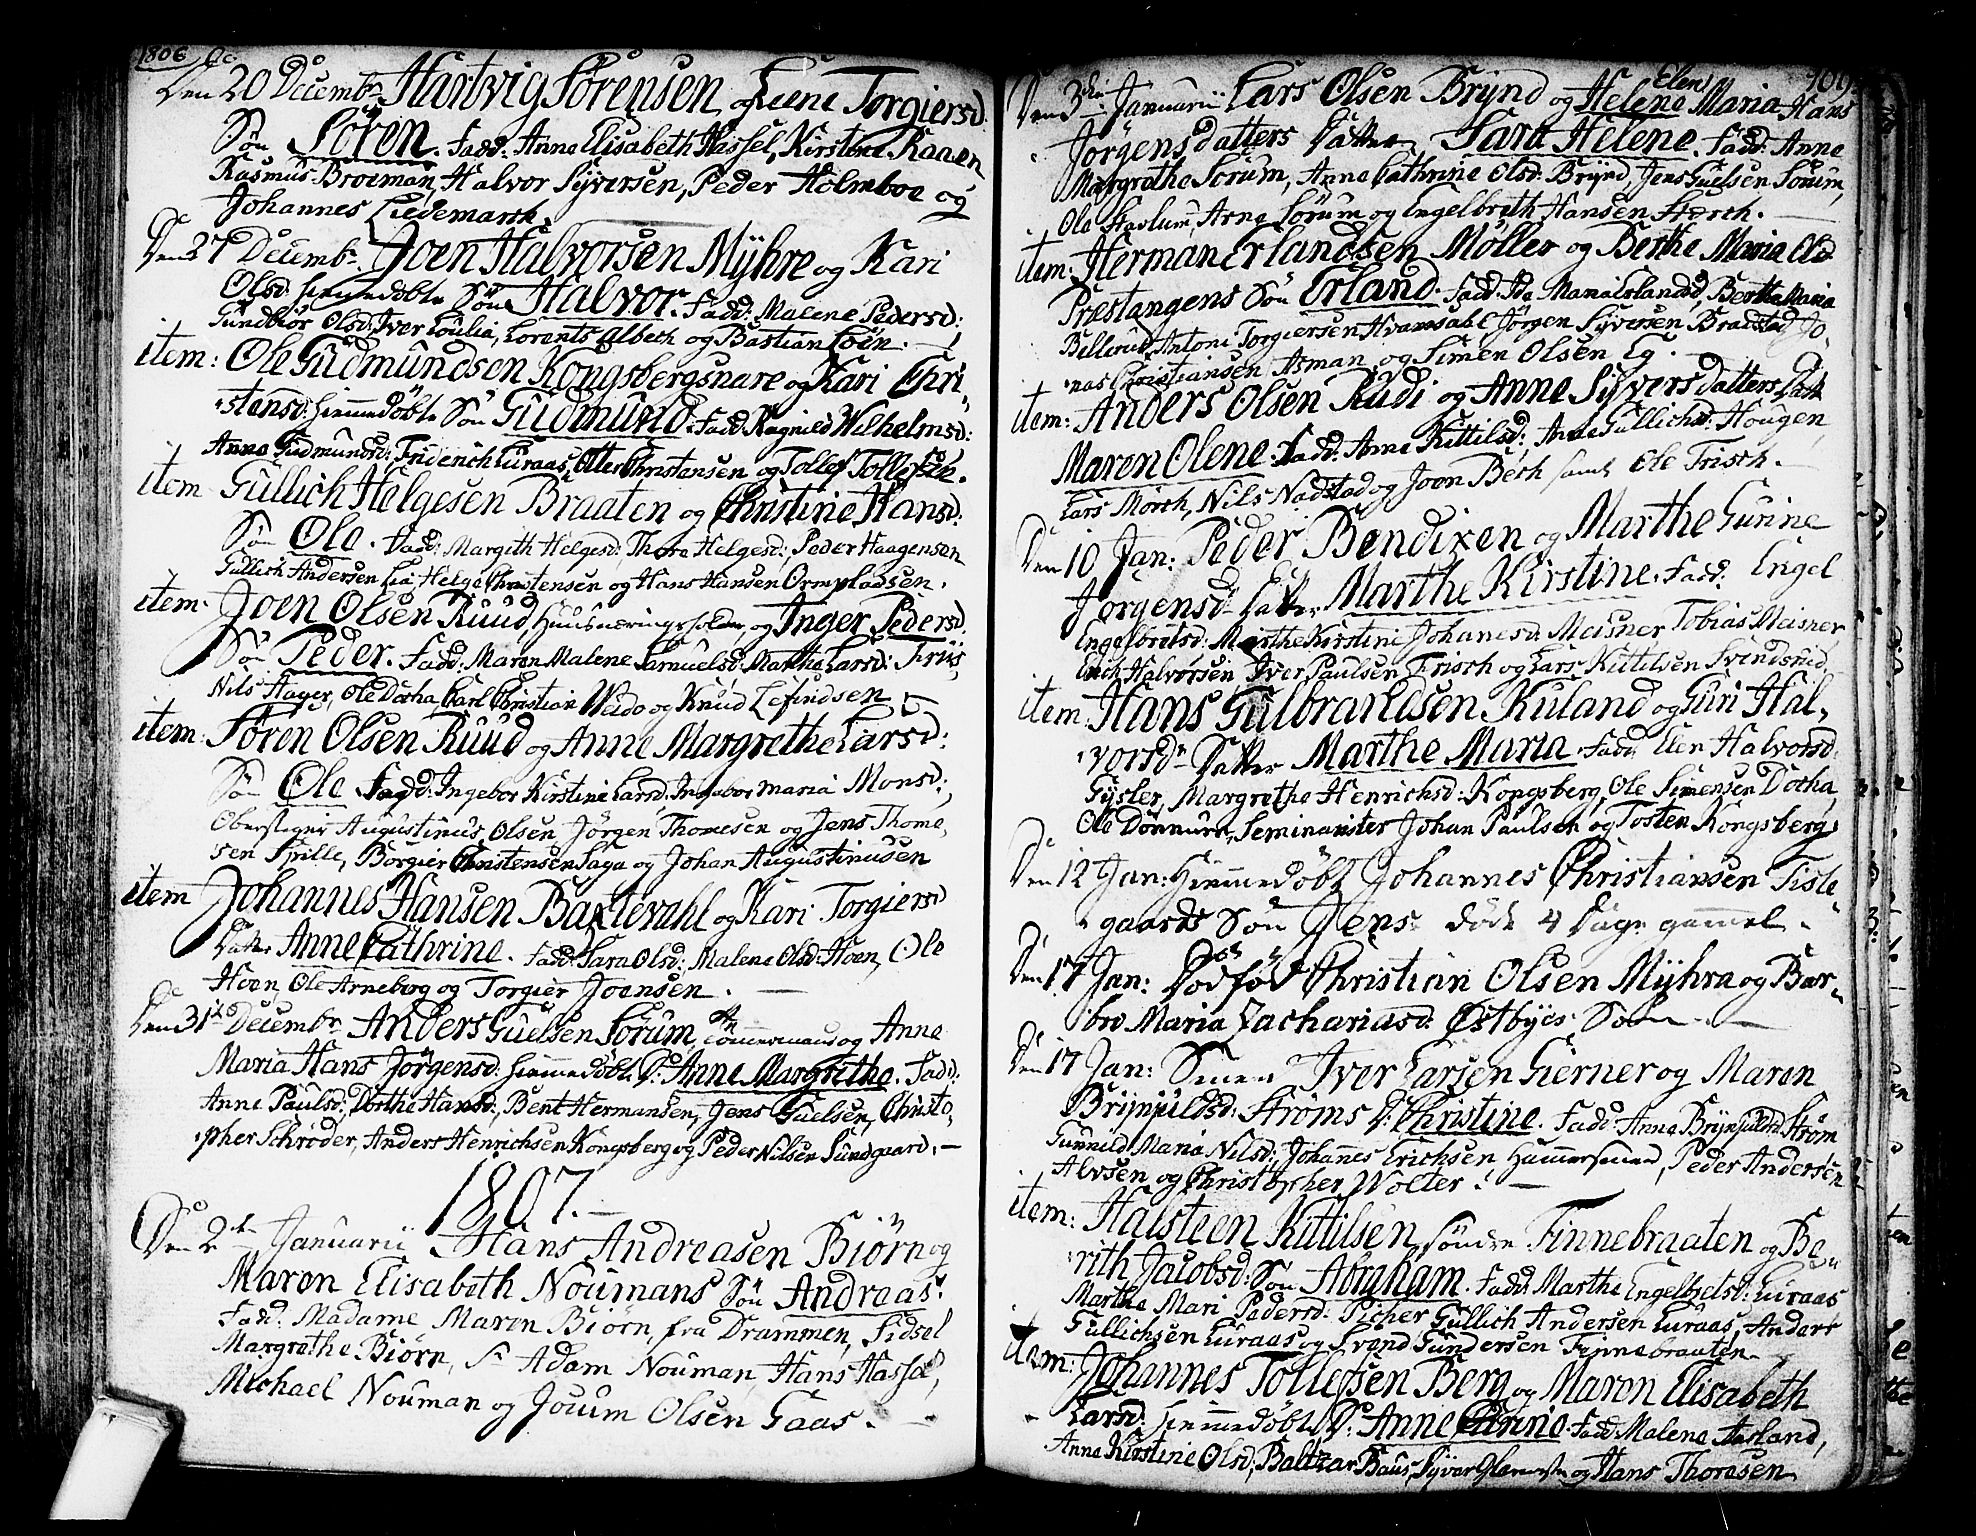 1806
Den 20 Decembr Hartvig Sörensen, og Lene Torgiersd:
Sön Sören. Fadd: Anne Elisabeth Hassel, Kirstene Kaaen
Rasmus Broeman, Halvor Syversen, Peder Holmboe og
Johannes Liedemark.
Den 27 Decembr. Joen Halvorsen Mÿhre og Kari
Olsd: hiemmedöbte Sön Halvor. Fadd: Malene Pedersd:
Gundbiör Olsd: Iver Loulia, Lorents Albeck og Bastian Loën.
item: Ole Gudmundsen Kongsbergsnare og Kari Chri-
stensd: hiemmedöbte Sön Gudmund. Fadd: Ragnild Wilhelmsd:
Anne Gudmundsd: Friderich Luraas, Otter Christensen og Tollef Tollefsen.
item Gullich Helgesen Braaten og Christine Hansd:
Sön Ole. Fadd: Margith Helgesd: Thora Helgesd: Peder Haagensen
Gullich Andersen Lia Helge Christensen og Hans Hansen Ormpladsen.
item. Joen Olsen Ruud, Huusnæringssolder, og Inger Pedersd.
Sön Peder. Fadd: Maren Malene Samuelsd: Marthe Larsd: Friis,
Nils Hager, Ole Dotha, Carl Christian Weido og Knud Lefindsen
item: Sören Olsen Ruud og Anne Margrethe Larsd:
Sön Ole Fadd: Ingebor Kirstine Larsd: Ingebor Maria Monsd:,
Obersteger Augustinus Olsen Jörgen Thomesen og Jens Thome,
sen Spille, Börgier Christensen Saga og Johan Augustinusen
item Johannes Hansen Baxtevahl og Kari Torgiersd
Datter Anne Cathrine. Fadd: Sara Olsd: Malene Olsd: Hoen, Ole
Hoen, Ole Arneberg og Torgier Joensen.
Den 31te Decembr Anders Guelsen Sorum, Tömmermans og Anne
Maria Hans Jörgensd: hiemmedöbt D: Anne Margrethe. Fadd:
Anne Paulsd: Dorthe Hansd:, Bent Hermansen, Jens Guelsen, Christo-
pher Schrøder, Anders Henrichsen Kongsberg og Peder Nilsen Sundgaard.
1807.
Den 2den Januarii Hans Andreasen Biörn og
Maren Elisabeth Noumans Sön Andreas.
Fadd: Madame Maren Biörn, fra Drammen, Sidsel
Margrethe Biörn, Sr Adam Nouman, Hans Hassel,
Michael Nouman og Jouum Olsen Gaas.
109
Elen
Den 3die Januarii Lars Olsen Brÿnd og Helene Maria Hans
Jörgensdatters Datter Sara Helene. Fadd: Anne
Margrethe Sorum, Anne Cathrine Olsd: Brÿnd, Jens Guelsen Sorum,
Ole Haslum, Arne Sörum og Engelbreth Hansen Storch.
item: Herman Erlandsen Möller og Berthe Maria Olsd
Præstangens Sön Erland. Fadd: Ida Maria Erlandsd, Berthe Maria
Bellerud, Antoni Torgiersen Hvamsahl Jörgen Syversen Bradstad Jo-
nas Christiansen Asman, og Simen Olsen Eg.
item: Anders Olsen Rudi og Anne Sijversdatters Datt
Maren Olene. Fadd: Anne Kittilsd; Anne Gullichsd: Hougen,
Lars Mörch, Nils Nadstad og Joen Bech samt Ole Frisch.
Den 10 Jan: Peder Bendixen og Marthe Gurine
Jörgensd: Datter Marthe Kirstine. Fadd: Engel
Engelbretsd: Marthe Kirstine Johanesd: Meisner Tobias Meisner
Erich Halvorsen Iver Paulsen Frisch og Lars Kittilsen Svindsrud.
item: Hans Gulbrandsen Ruland og Guri Hal,
vorsdr Datter Marthe Maria. Fadd: Elen Halvorsd.
Gysler, Margrethe Henrichsd: Kongsberg, Ole Simensen Dotha,
Ole Dönnum, Seminarister Johan Paulsen og Tosten Kongsberg
Den 12 Jan: hiemmedöbt Johannes Christiansen Tisle
gaards Sön Jens döde 4 Dage gammel.
Den 17 Jan: Dödföd Christian Olsen Mÿhra og Bar-
bro Maria Zachariasd: Østbyes Sön.
Den 17 Jan: Iver Larsen Gierner og Maren
Brijnjulds: Ströms D: Christine. Fadd: Anne Brijnjuldsd Ström
Gunnild Maria Nilsd: Johannes Erichsen Hammersmed, Peder Andersen
Alvsen og Christopher Wolter.
item: Halsteen Kittilsen, söndre Finnebraaten og Be-
rith Jacobsd: Sön Abraham. Fadd: Marthe Engelbretsd: Luraas
Marthe Mari Pedersd: Picher Gullich Andersen Luraas, Anders
Gullichsen Luraas og Svend Gundersen Finnebraaten.
item: Johannes Tollefsen Berg og Maren Elisabeth
Larsd. hiemmedöbt D: Anne Cathrine. Fadd: Malene Aasland,
Anne Kirstine Olsd; Baltzar Baus, Syver og Hans Thoresen